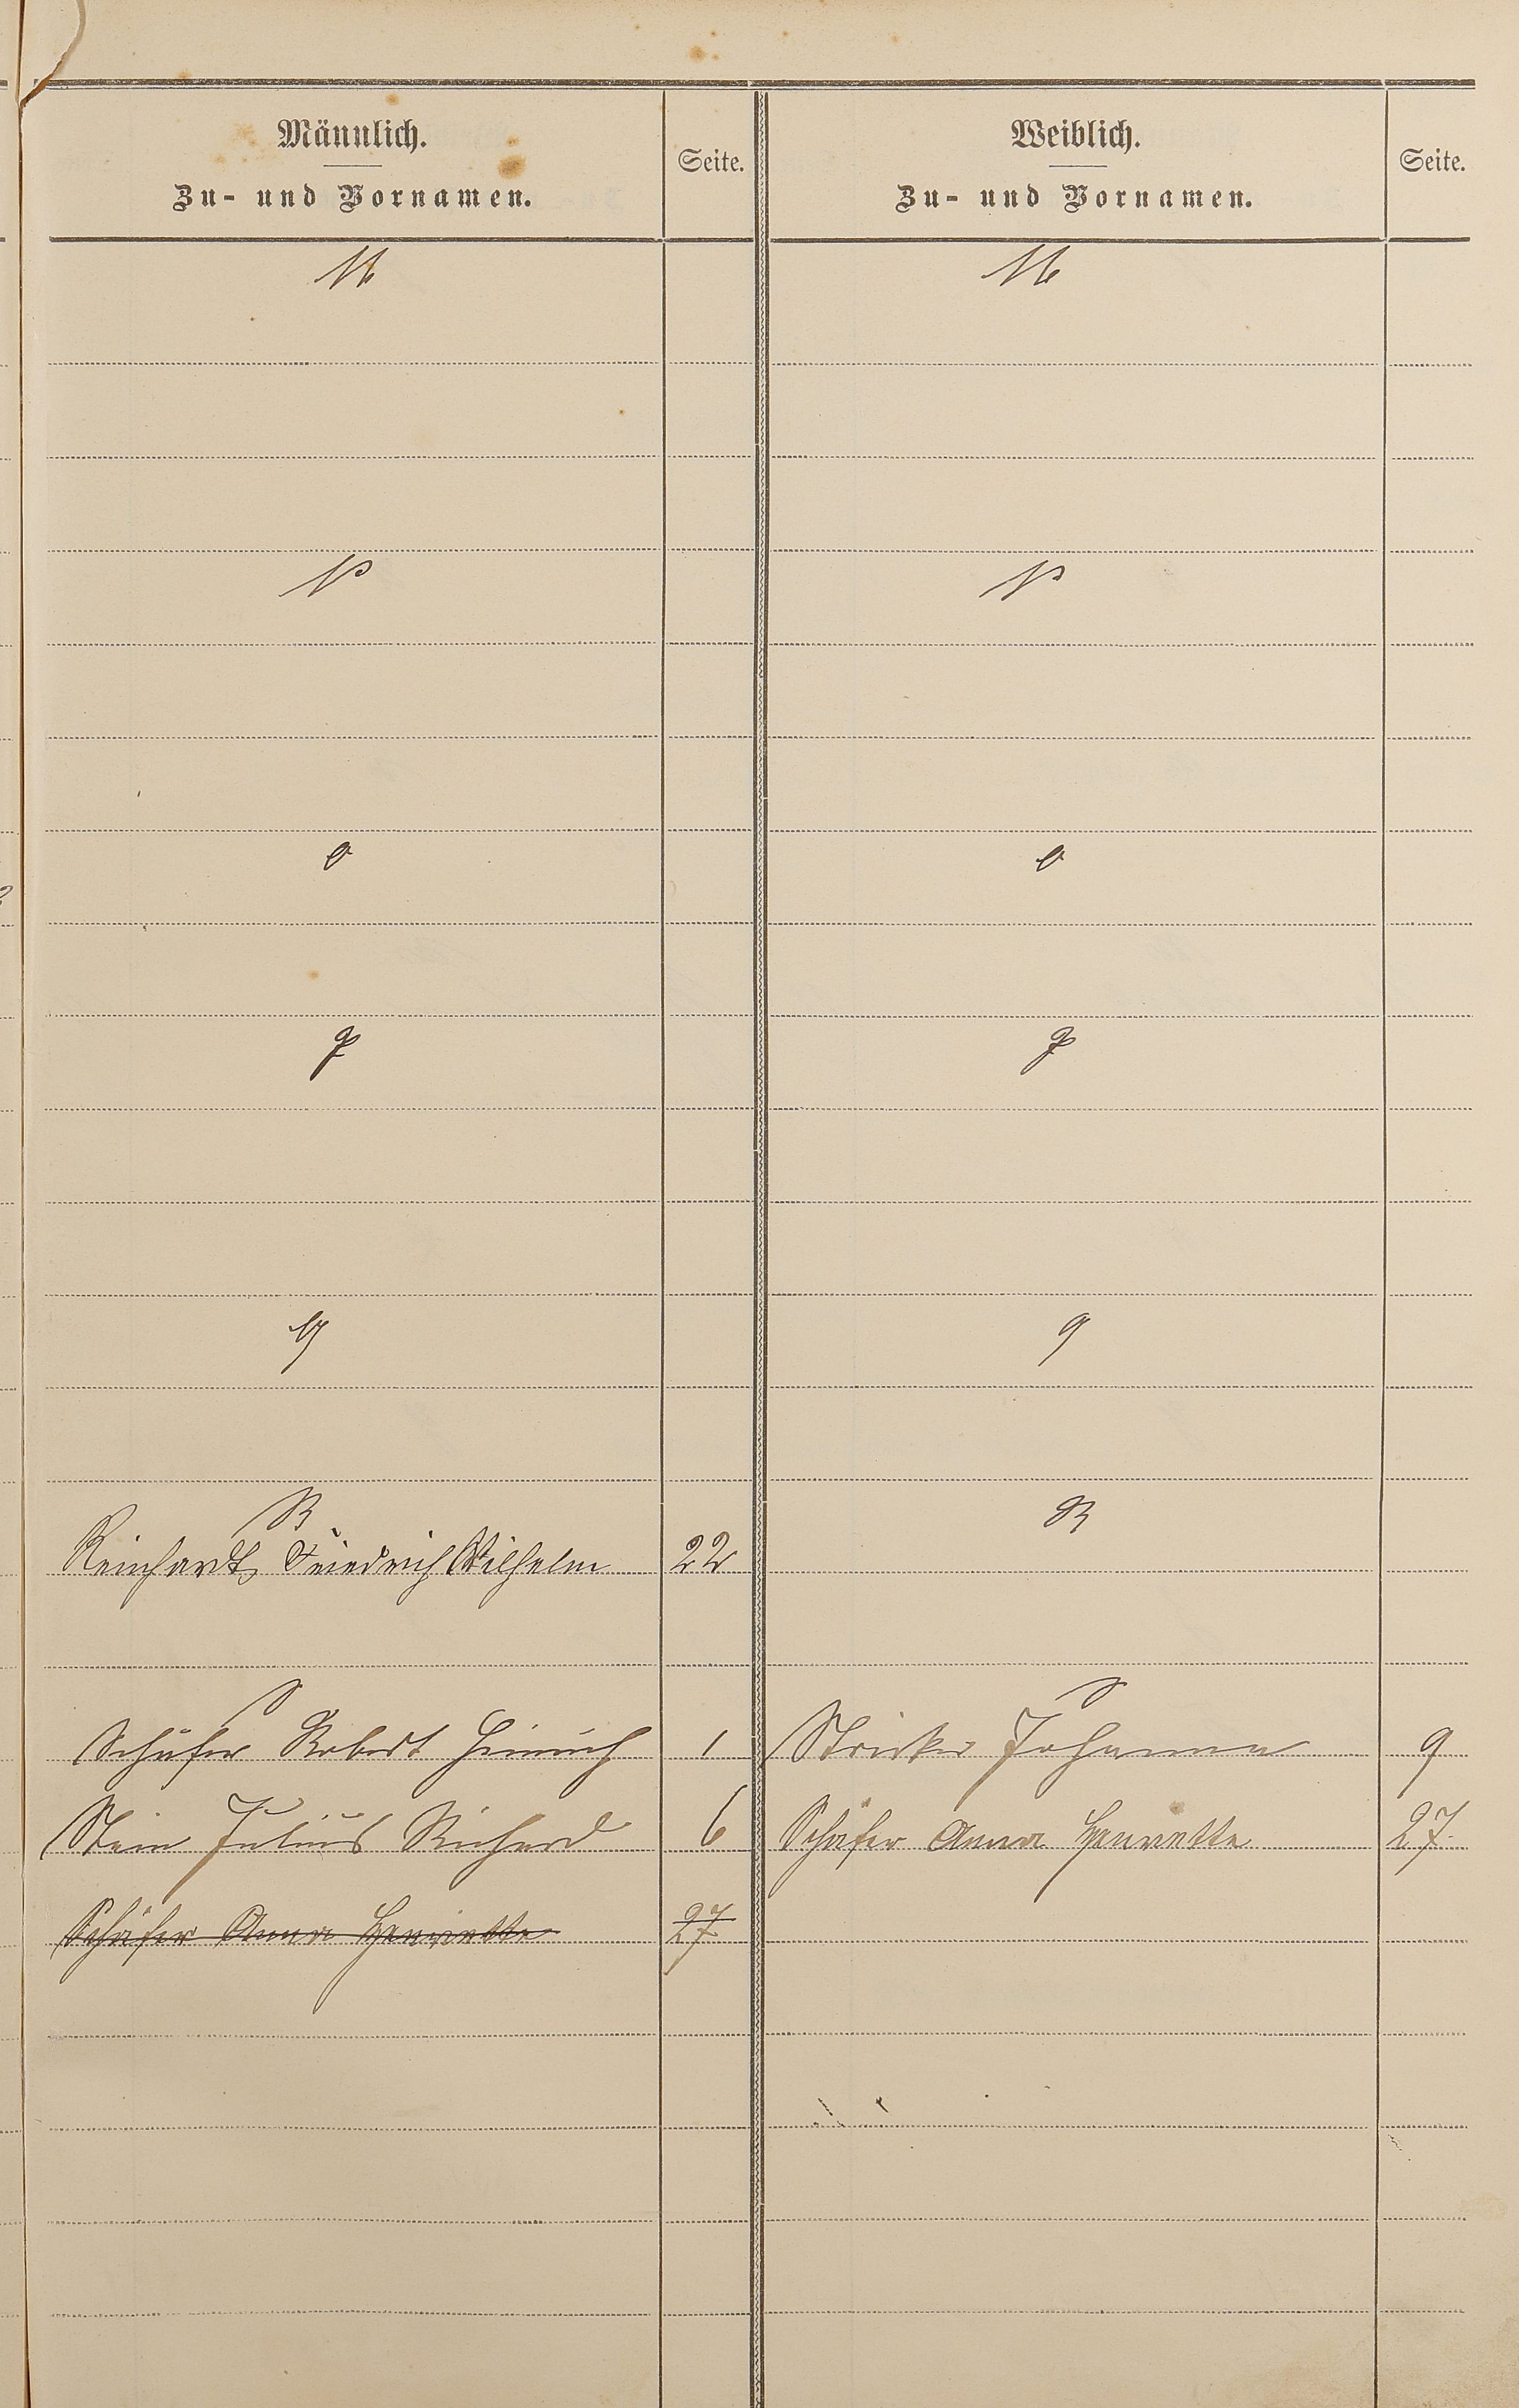 Männlich.
Zu- und Vornamen.
Seite.
Weiblich.
Zu- und Vornamen.
Seite.
M M
N N
O O
P P
Q Q
R R
Reinhardt, Friedrich Wilhelm 22
S S
Schäfer Robert Heinrich 1 Stricker Johanna 9
Stein Julius Richard 6 Schäfer Anna Henriette 27.
Schäfer Anna Henriette 27